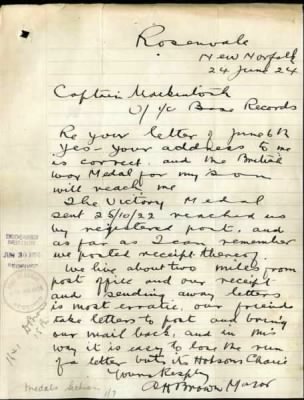 Rosenvale
New Norfolk
24 June 24
Captain Mackintosh
O/ i/c Base Records
Re your letter of June 6th
yes - your address to me
is correct and the British
War Medal for my Son
will reach me
The Victory Medal
sent 25/10/22 reached us
by registered post, and
as far as I can remember
we posted receipt thereof.
We live about two miles from
post office and our receipt
and sending away letters
is most erratic, our friends
take letters to post and bring
our mail back, and in this
way it is easy to lose the run
of a letter but its Hobsons Choice
Yours Respfly
A H Brown Major
JUN 30 1924
Medals Section
1/7